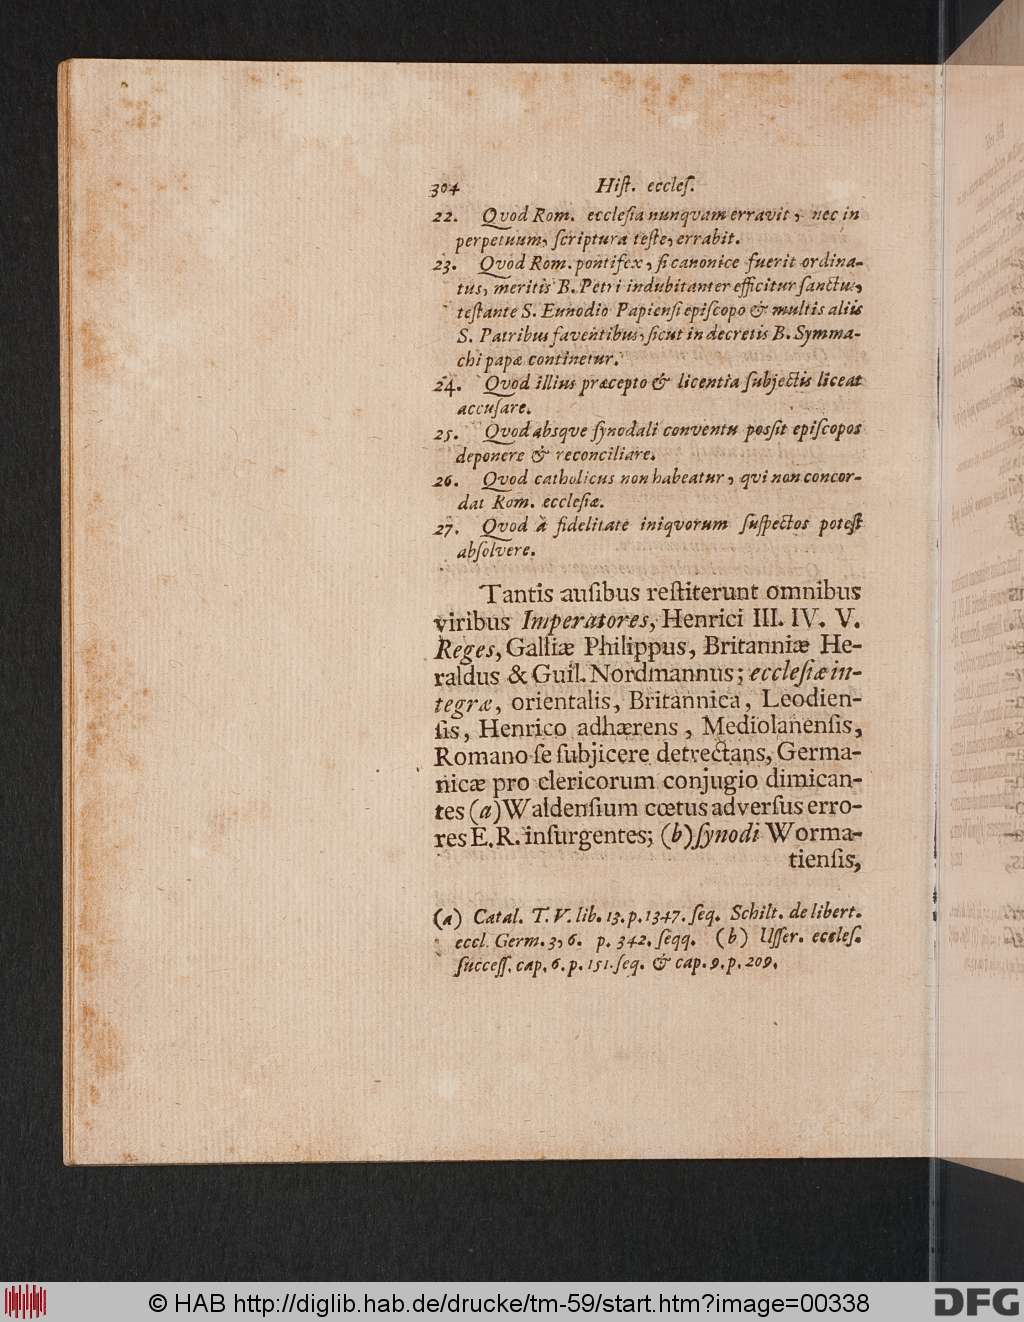 304 Hiſt. eccleſ.
22. Qvod Rom. eccleſia nunqvam erravit, nec in
perpetuum, ſcriptura teſte, errabit.
23. Qvod Rom. pontifex, ſi canonice fuerit ordina-
tus, meritis B. Petri indubitanter efficitur ſanctus,
teſtante S. Eunodio Papienſi epiſcopo & multis aliis
S. Patribus faventibus, ſicut in decretis B. Symma-
chi papæ continetur.
24. Qvod illius præcepto & licentia ſubjectis liceat
accuſare.
25. Qvod absqve ſynodali conventu posſit epiſcopos
deponere & reconciliare.
26. Qvod catholicus non habeatur, qvi non concor-
dat Rom. eccleſiæ.
27. Qvod à fidelitate iniqvorum ſuſpectos poteſt
abſolvere.
Tantis auſibus reſtiterunt omnibus
viribus Imperatores, Henrici III. IV. V.
Reges, Galliæ Philippus, Britanniæ He-
raldus & Guil. Nordmannus; eccleſiæ in-
tegræ, orientalis, Britannica, Leodien-
ſis, Henrico adhærens, Mediolanenſis,
Romano ſe ſubjicere detrectans, Germa-
nicæ pro clericorum conjugio dimican-
tes (a) Waldenſium cœtus adverſus erro-
res E. R. inſurgentes; (b) ſynodi Worma-
tienſis,
(a) Catal. T. V. lib. 13. p. 1347. ſeq. Schilt. de libert.
eccl. Germ. 3, 6. p. 342. ſeqq. (b) Uſſer. eccleſ.
ſucceſſ. cap. 6. p. 151. ſeq. & cap. 9. p. 209.
© HAB http://diglib.hab.de/drucke/tm-59/start.htm?image=00338
DFG